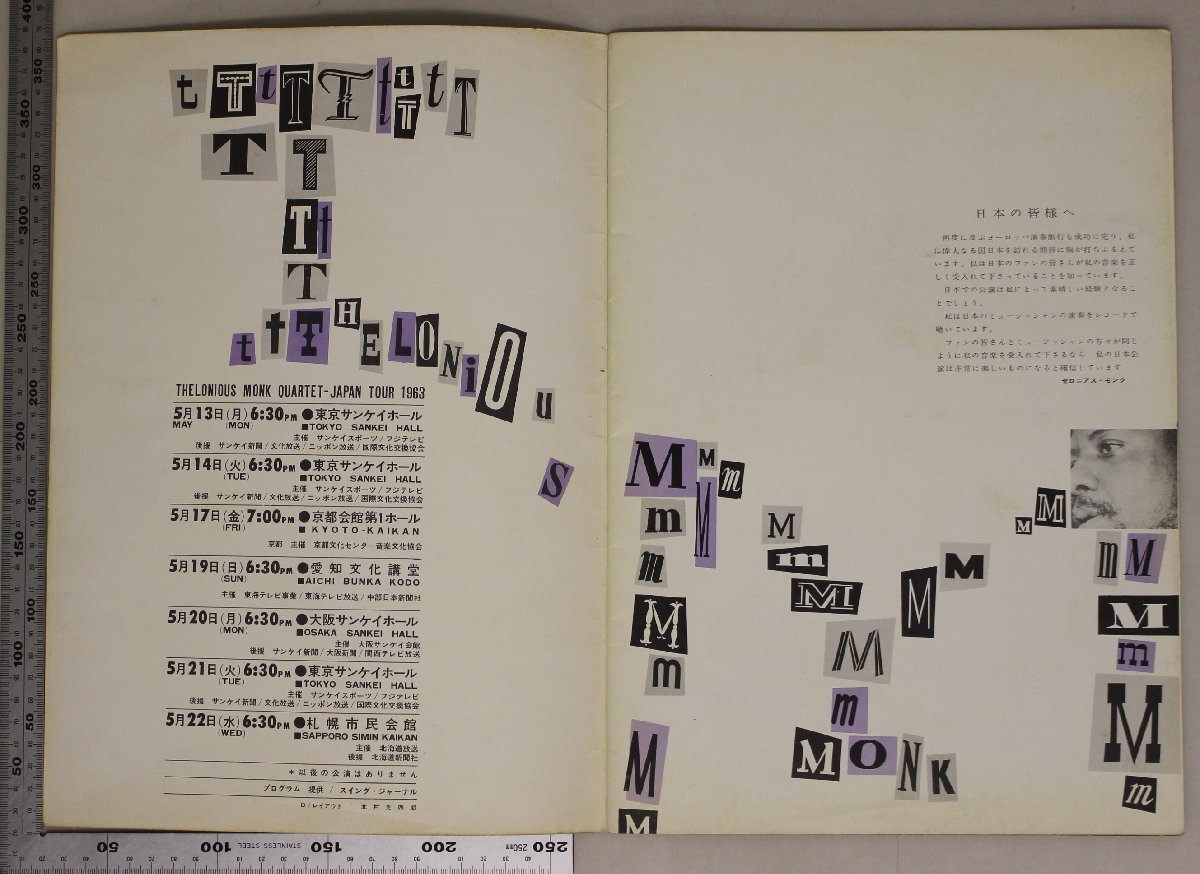 t T t T T t t T t T
T T
T t
T
t t T THELONIOUS
THELONIOUS MONK QUARTET-JAPAN TOUR 1963
5月13日(月)6:30PM ●東京サンケイホール
MAY (MON) ■TOKYO SANKEI HALL
主催 サンケイスポーツ/フジテレビ
後援 サンケイ新聞/文化放送/ニッポン放送/国際文化交換協会
5月14日(火)6:30PM ●東京サンケイホール
(TUE) ■TOKYO SANKEI HALL
主催 サンケイスポーツ/フジテレビ
後援 サンケイ新聞/文化放送/ニッポン放送/国際文化交換協会
5月17日(金)7:00PM ●京都会館第1ホール
(FRI) ■KYOTO-KAIKAN
京都 主催 京都文化センター 音楽文化協会
5月19日(日)6:30PM ●愛知文化講堂
(SUN) ■AICHI BUNKA KODO
主催 東海テレビ事業/東海テレビ放送/中部日本新聞社
5月20日(月)6:30PM ●大阪サンケイホール
(MON) ■OSAKA SANKEI HALL
主催 大阪サンケイ会館
後援 サンケイ新聞/大阪新聞/関西テレビ放送
5月21日(火)6:30PM ●東京サンケイホール
(TUE) ■TOKYO SANKEI HALL
主催 サンケイスポーツ/フジテレビ
後援 サンケイ新聞/文化放送/ニッポン放送/国際文化交換協会
5月22日(水)6:30PM ●札幌市民会館
(WED) ■SAPPORO SIMIN KAIKAN
主催 北海道放送
後援 北海道新聞社
*以後の公演はありません
プログラム 提供 / スイング・ジャーナル
D/レイアウト
日本の皆様へ
再度に及ぶヨーロッパ演奏旅行も成功に終り、私
は偉大なる国日本を訪れる期待に胸が打ちふるえて
います。私は日本のファンの皆さんが私の音楽を正
しく受入れて下さっていることを知っています。
日本での公演は私にとって素晴しい経験となるこ
とでしょう。
私は日本のミュージッシャンの演奏をレコードで
聴いています。
ファンの皆さんとミュージッシャンの方々が同じ
ように私の音楽を受入れて下さるなら 私の日本公
演は非常に楽しいものになると確信しています
セロニアス・モンク
M M m
m M M M M
m m M M m M
M M M M
m M m
m M
M MONK m
M
STAINLESS STEEL
50 100 150 200 250mm
50 100 150 200 250 300 350 400